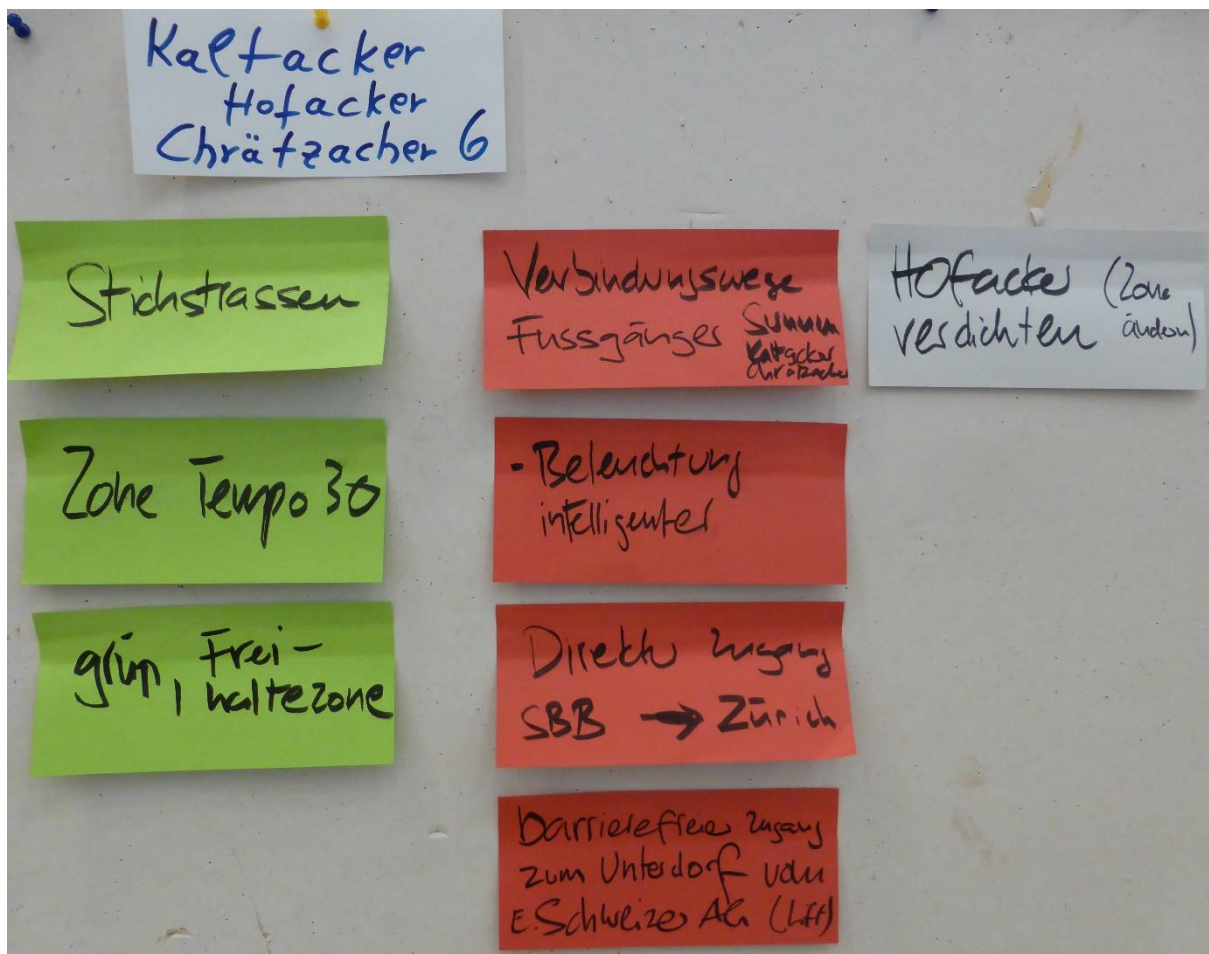 Kaltacker
Hofacker
Chrätzacher 6
Stichstrassen
Zone Tempo 30
grün, Frei-
haltezone
Verbindungswege
Fussgänger
Kaltacker
Chrätzacher
- Beleuchtung
intelligenter
Direkter Zugang
SBB → Zürich
barrierefreier Zugang
zum Unterdorf von
E. Schweizer AG (Lift)
Hofacker (Zone
verdichten ändern)